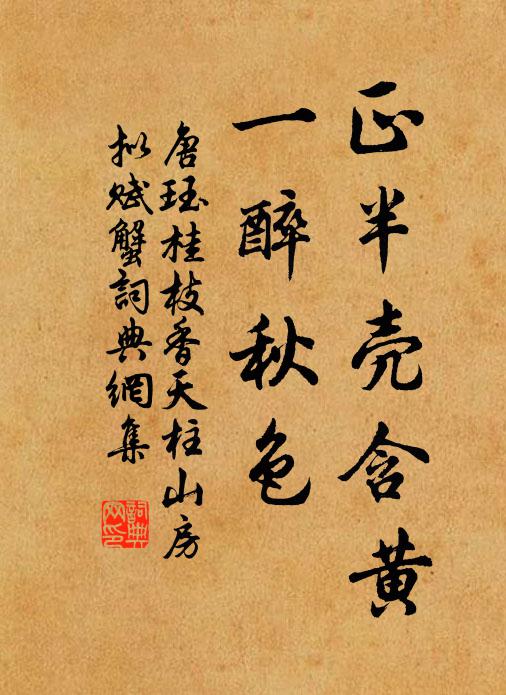 正半壳含黄
一醉秋色
唐珏桂枝香天柱山房
拟赋蟹詞典網集
詞典網印